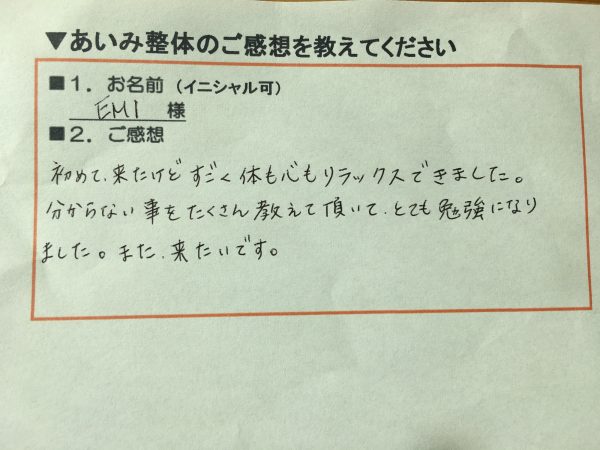 ▼あいみ整体のご感想を教えてください
■1．お名前（イニシャル可）
EMI 様
■2．ご感想
初めて、来たけどすごく体も心もリラックスできました。
分からない事をたくさん教えて頂いて、とても勉強になり
ました。また、来たいです。